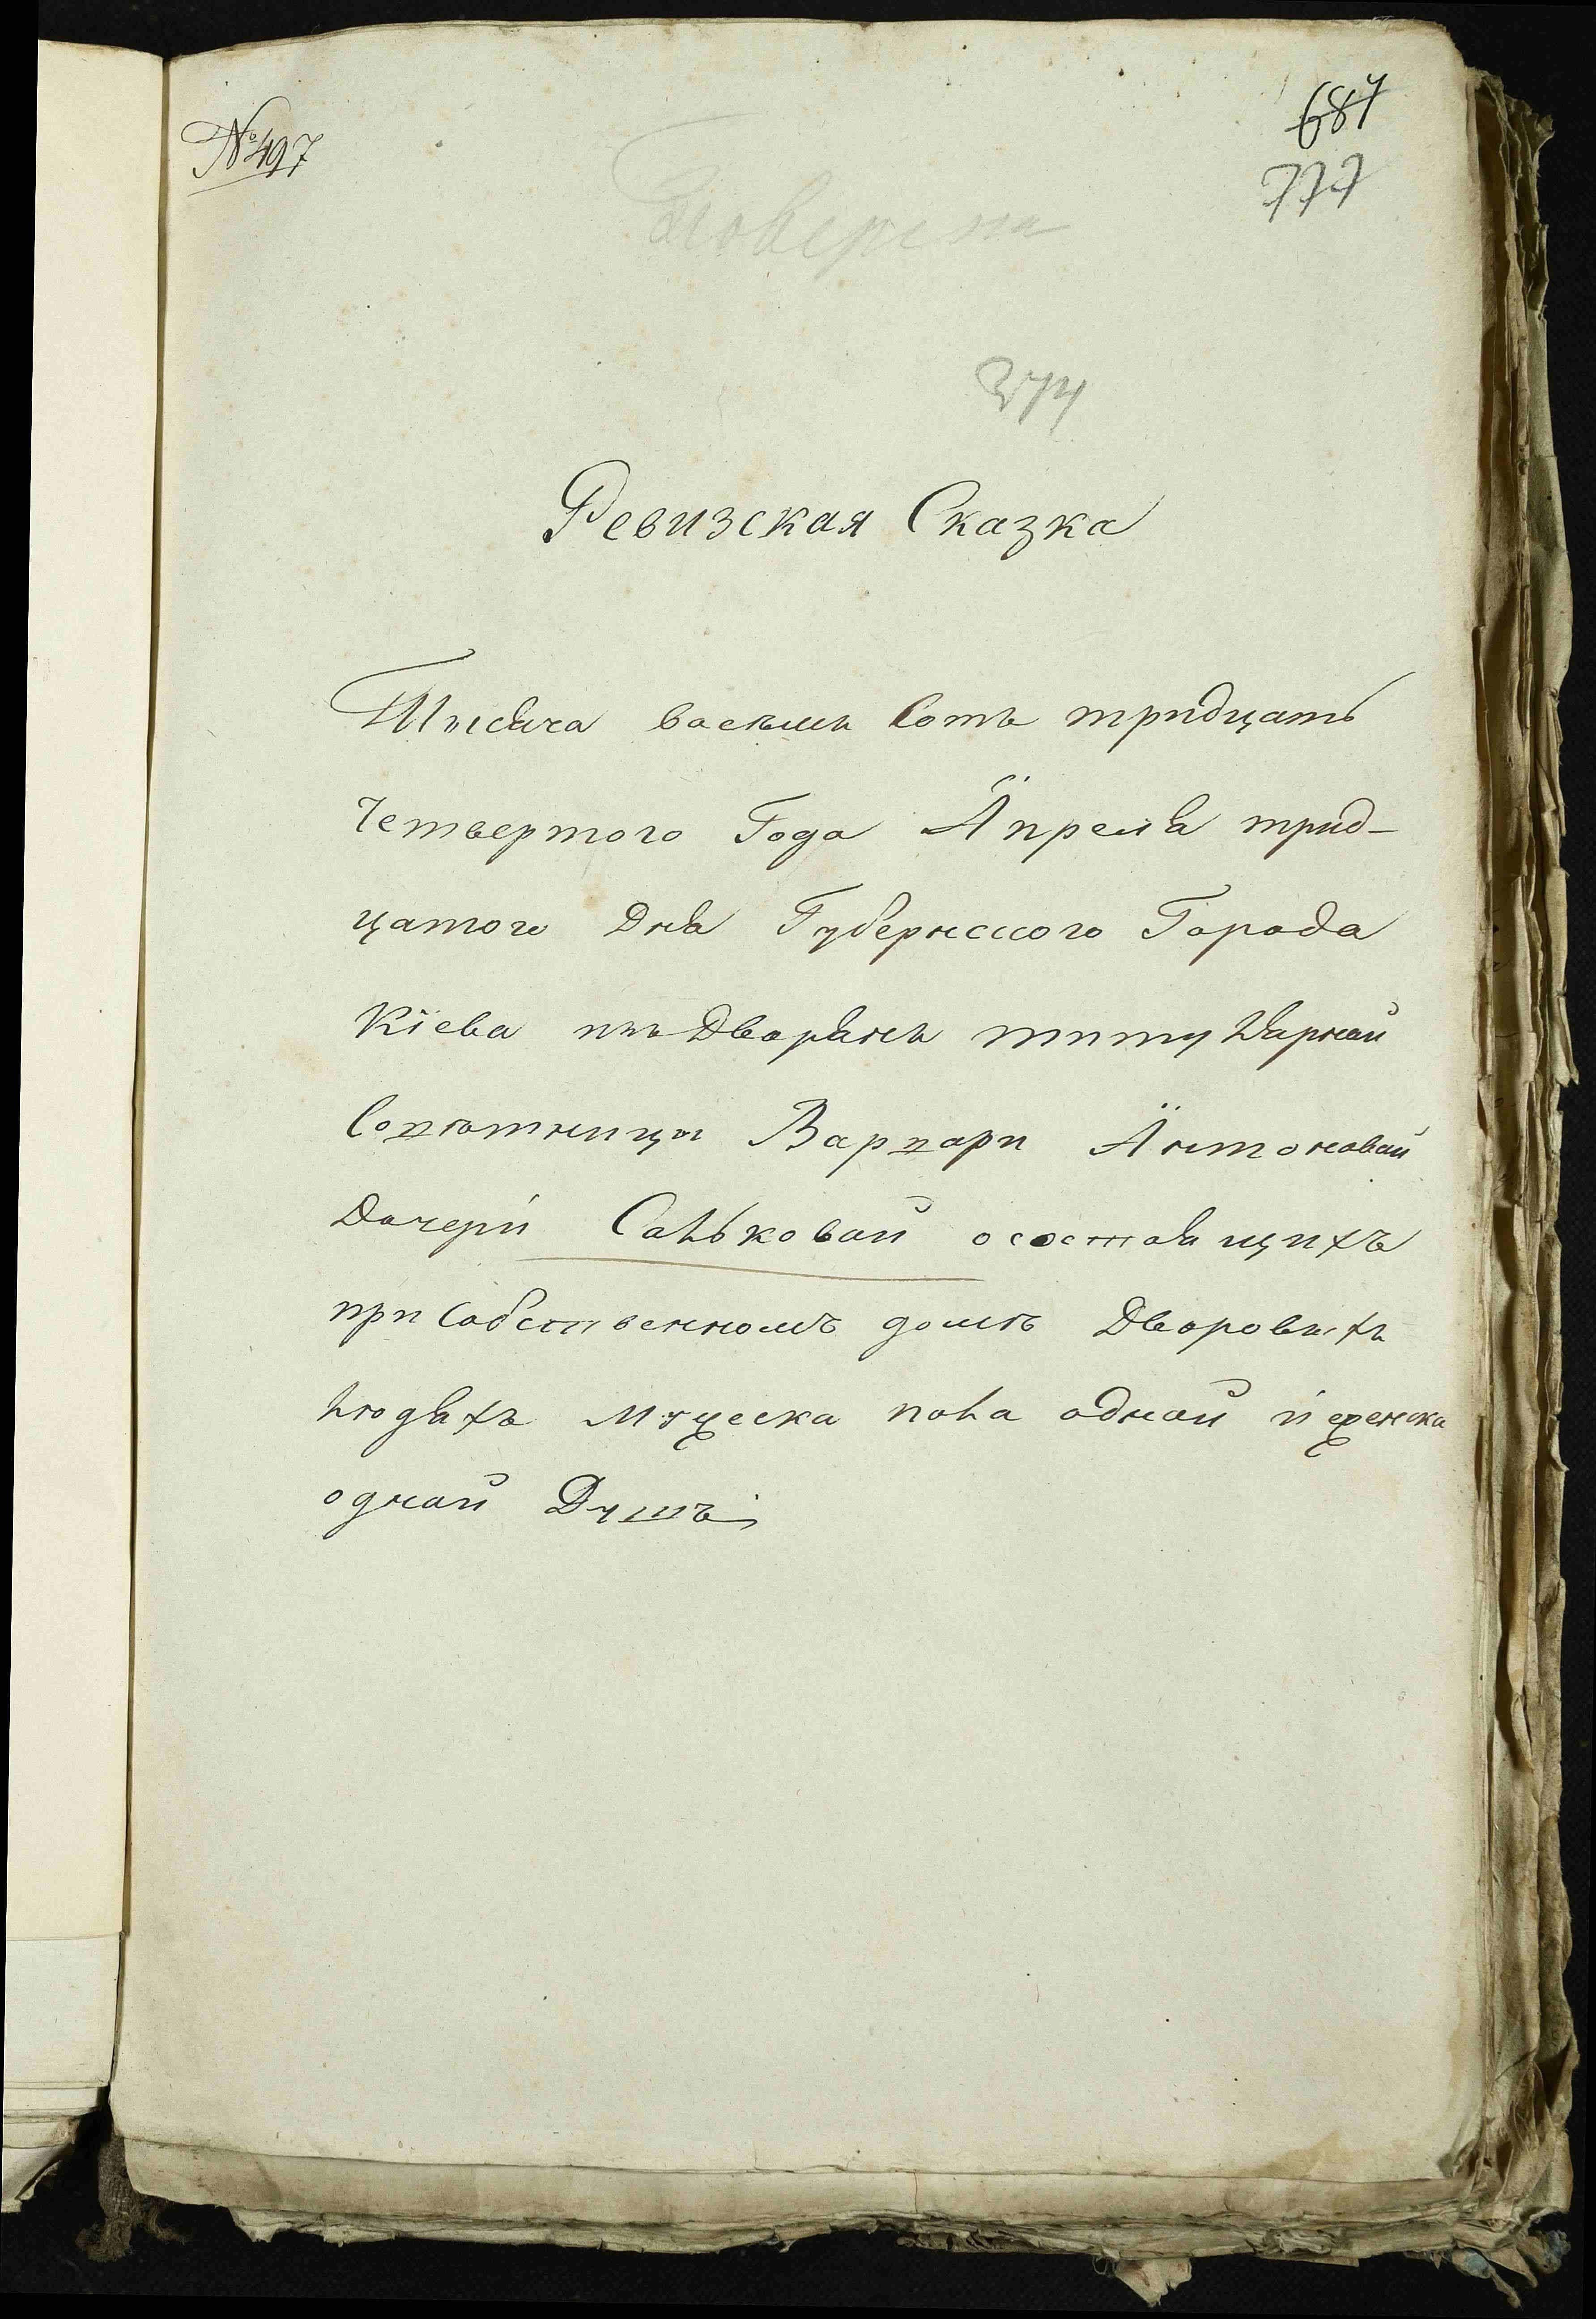 №497
687
777
Поверено
374
Ревизская Сказка
Тысяча восемь Сотъ тридцать
Четвертого Года Апреля трид-
цатого Дня Губернского Города
Кіева изъ Дворянъ титулярной
Советницы Варвары Антоновой
Дочери Сальковой о состоящихъ
при Собственномъ домѣ Дворовыхъ
людяхъ Мужеска пола одной и женска
одной Душъ